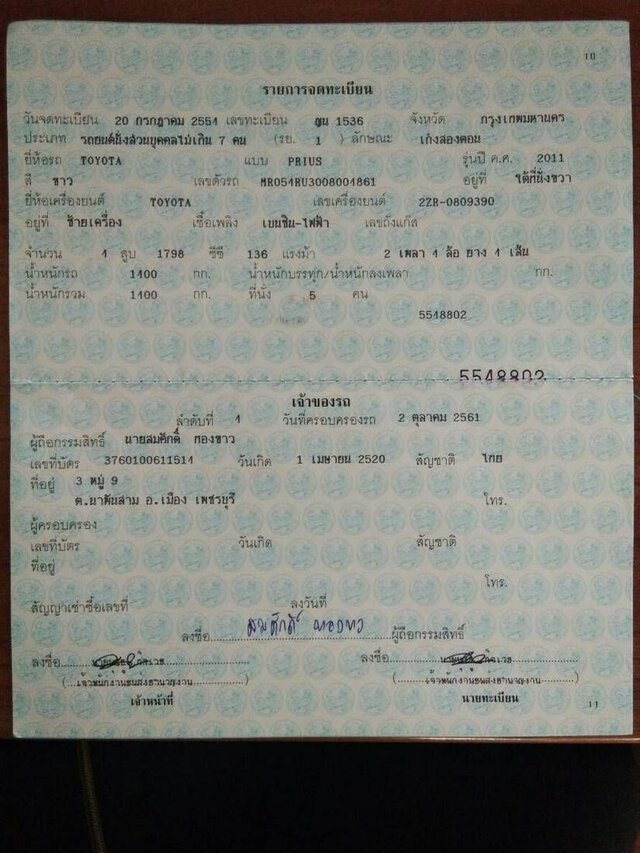 10
รายการจดทะเบียน
วันจดทะเบียน 20 กรกฎาคม 2554 เลขทะเบียน ฆน 1536 จังหวัด กรุงเทพมหานคร
ประเภท รถยนต์นั่งส่วนบุคคลไม่เกิน 7 คน (รย. 1) ลักษณะ เก๋งสองตอน
ยี่ห้อรถ TOYOTA แบบ PRIUS รุ่นปี ค.ศ. 2011
สี ขาว เลขตัวรถ MR054RU3008004861 อยู่ที่ ใต้ที่นั่งขวา
ยี่ห้อเครื่องยนต์ TOYOTA เลขเครื่องยนต์ 2ZR-0809390
อยู่ที่ ซ้ายเครื่อง เชื้อเพลิง เบนซิน-ไฟฟ้า เลขถังแก๊ส
จำนวน 4 สูบ 1798 ซีซี 136 แรงม้า 2 เพลา 4 ล้อ ยาง 4 เส้น
น้ำหนักรถ 1400 กก. น้ำหนักบรรทุก/น้ำหนักลงเพลา กก.
น้ำหนักรวม 1400 กก. ที่นั่ง 5 คน
5548802
5548802
เจ้าของรถ
ลำดับที่ 4 วันที่ครอบครองรถ 2 ตุลาคม 2561
ผู้ถือกรรมสิทธิ์ นายสมศักดิ์ ทองขาว
เลขที่บัตร 3760100611514 วันเกิด 1 เมษายน 2520 สัญชาติ ไทย
ที่อยู่ 3 หมู่ 9
ต.นาพันสาม อ.เมือง เพชรบุรี
โทร.
ผู้ครอบครอง
เลขที่บัตร วันเกิด สัญชาติ
ที่อยู่
โทร.
สัญญาเช่าซื้อเลขที่ ลงวันที่
ลงชื่อ สมศักดิ์ ผู้ถือกรรมสิทธิ์
ลงชื่อ ลงชื่อ
(เจ้าพนักงานขนส่งชำนาญงาน) (เจ้าพนักงานขนส่งชำนาญงาน)
เจ้าหน้าที่ นายทะเบียน
11